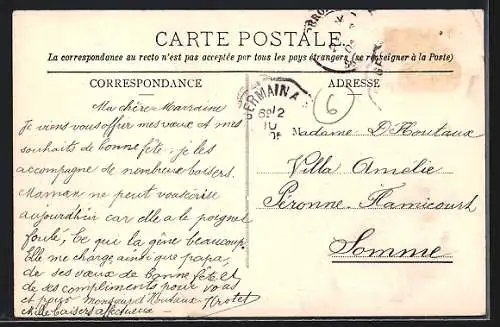 CARTE POSTALE
La correspondance au recto n'est pas acceptée par tous les pays étrangers (se renseigner à la Poste)
CORRESPONDANCE
Ma chère Marraine
Je viens vous offrir mes vœux et mes
souhaits de bonne fête; je les
accompagne de nombreux baisers.
Maman ne peut vous écrire
aujourdhui car elle a le poignet
foulé, Ce qui la gêne beaucoup.
Elle me charge ainsi que papa,
de ses vœux de bonne fête et
de ses compliments pour vous
et pour Monsieur d'Houtaux
Mille baisers affectueux
ADRESSE
GERMAINA
6
Madame D'Houtaux
Villa Amélie
Péronne-Flamicourt
Somme